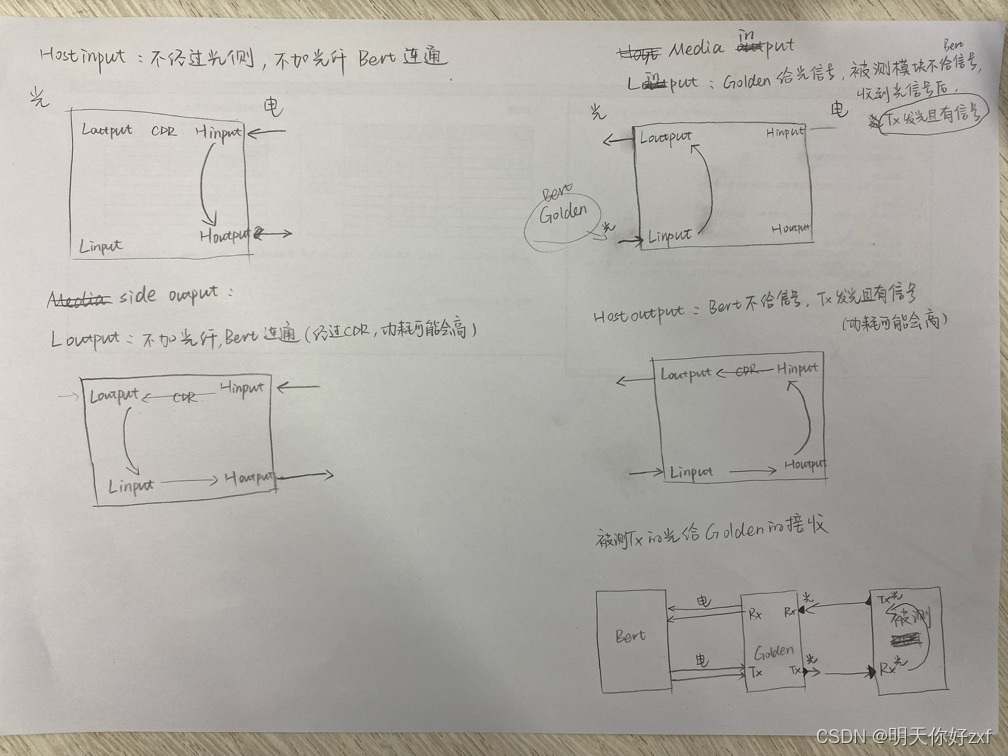 Host input：不经过光侧，不加光纤 Bert 连通
光
电
Loutput CDR Hinput
Houtput
Linput
Media side output：
Loutput：不加光纤，Bert 连通（经过CDR，功耗可能会高）
Loutput CDR Hinput
Linput Houtput
Host Media input
Linput：Golden 给光信号，被测模块不给信号，
Bert
收到光信号后，
Tx发光且有信号
光
电
Loutput Hinput
Bert
Golden
光
Linput
Houtput
Host output：Bert 不给信号，Tx发光且有信号
（功耗可能会高）
Loutput CDR Hinput
Linput Houtput
被测Tx的光给Golden的接收
Bert
电
电
Rx Rx
Golden
Tx Tx
光
光
Tx光
被测
Rx光
CSDN @明天你好zxf